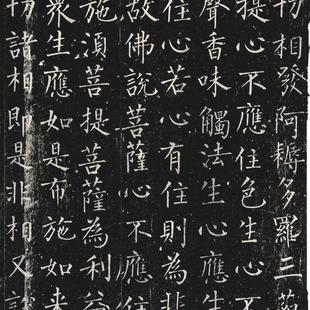 切相發阿耨多羅三藐
提心不應住色生心不
聲香味觸法生心應生
住心若心有住則為非
故佛說菩薩心不應住
施須菩提菩薩為利益
眾生應如是布施如来
切諸相即是非相又說